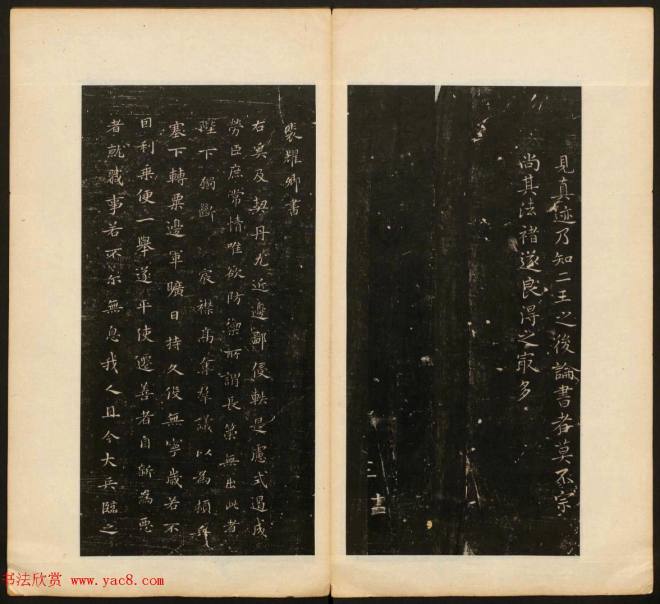 見真迹乃知二王之後論書者莫不宗
尚其法褚遂良得之冣多
三 十
裴耀卿書
右奚及契丹尤近邊鄙侵軼是慮式遏成
勞臣庶常情唯欲防禦所謂長策無出此者
陛下獨斷 宸襟高奪群議以為頓兵
塞下轉粟邊軍曠日持久役無寧歲若不
因利乘便一舉遂平使遷善者自新為惡
者就職事若不尔無息我人且今大兵臨之
书法欣赏 www.yac8.com